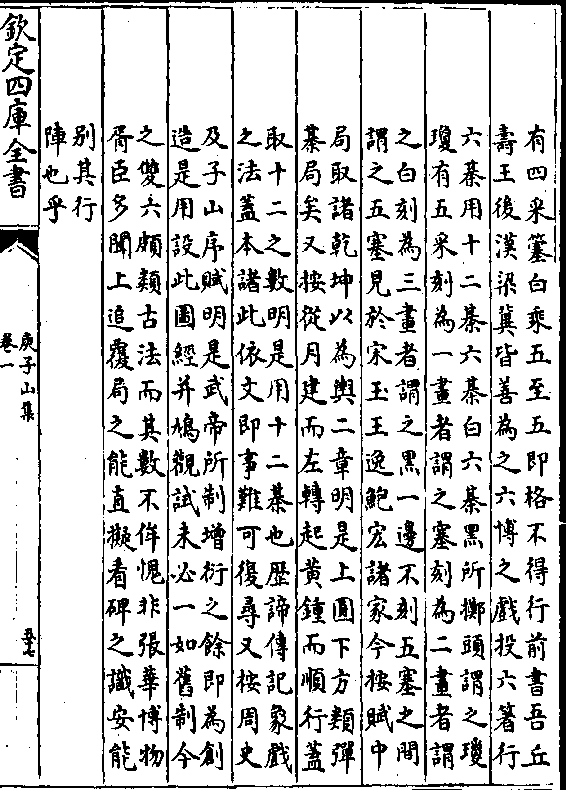 有四采簺白乗五至五即格不得行前書吾丘
壽王後漢梁冀皆善為之六博之戲投六箸行
六棊用十二棊六棊白六棊黒所擲頭謂之瓊
瓊有五采刻為一畫者謂之塞刻為二畫者謂
之白刻為三畫者謂之黒一邊不刻五塞之間
謂之五塞見於宋玉王逸鮑宏諸家今按賦中
局取諸乾坤以為輿二章明是上圓下方類彈
棊局矣又按從月建而左轉起黄鍾而順行蓋
取十二之數明是用十二棊也歴諦傳記象戲
之法蓋本諸此依文即事難可復尋又按周史
及子山序賦明是武帝所制增衍之餘即為創
造是用設此圖經并鳩觀試未必一如舊制今
之雙六頗類古法而其數不侔愧非張華博物
胥臣多聞上追覆局之能直擬看碑之識安能
别其行
陣也乎
欽定四庫全書
庾子山集
卷一
五十七